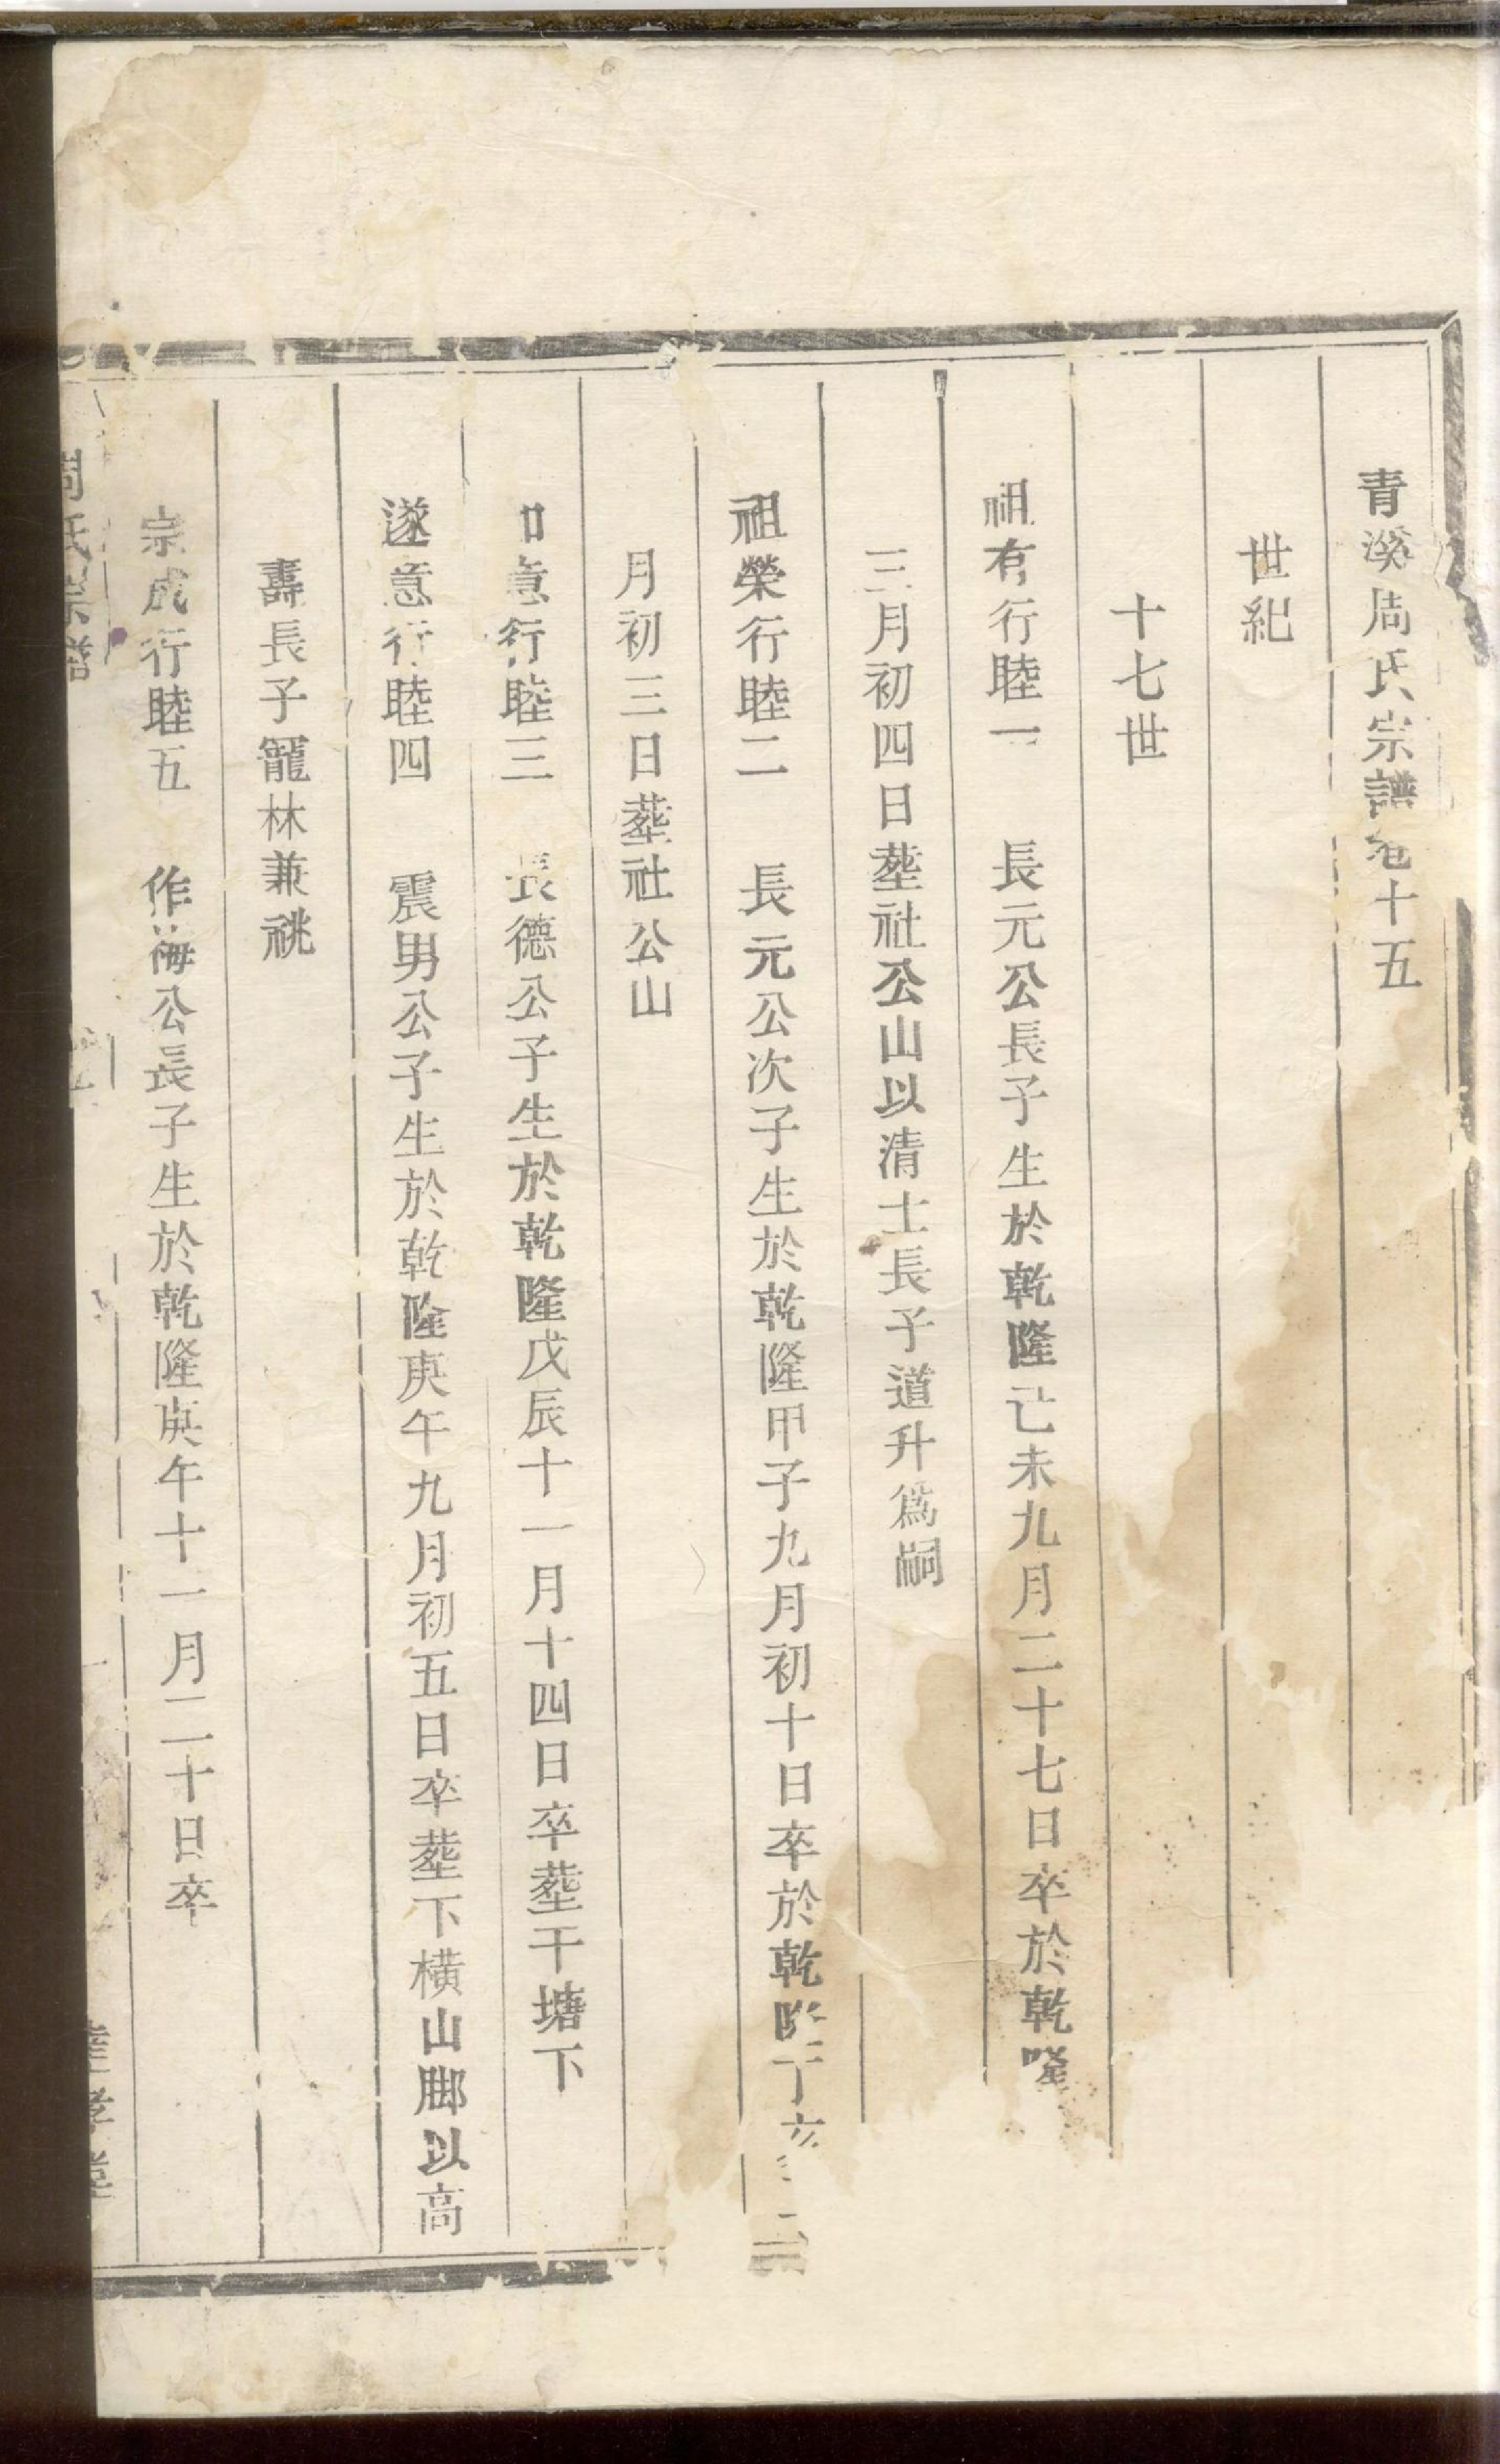 青溪周氏宗譜卷十五
世紀
十七世
祖有行睦一　長元公長子生於乾隆己未九月二十七日卒於乾隆
三月初四日塟社公山以清士長子道升爲嗣
祖榮行睦二　長元公次子生於乾隆甲子九月初十日卒於乾隆丁亥
月初三日塟社公山
意行睦三　長德公子生於乾隆戊辰十一月十四日卒塟干塘下
遂意行睦四　震男公子生於乾隆庚午九月初五日卒塟下橫山脚以高
壽長子寵林兼祧
宗成行睦五　作海公長子生於乾隆庚午十一月二十日卒
周氏宗譜